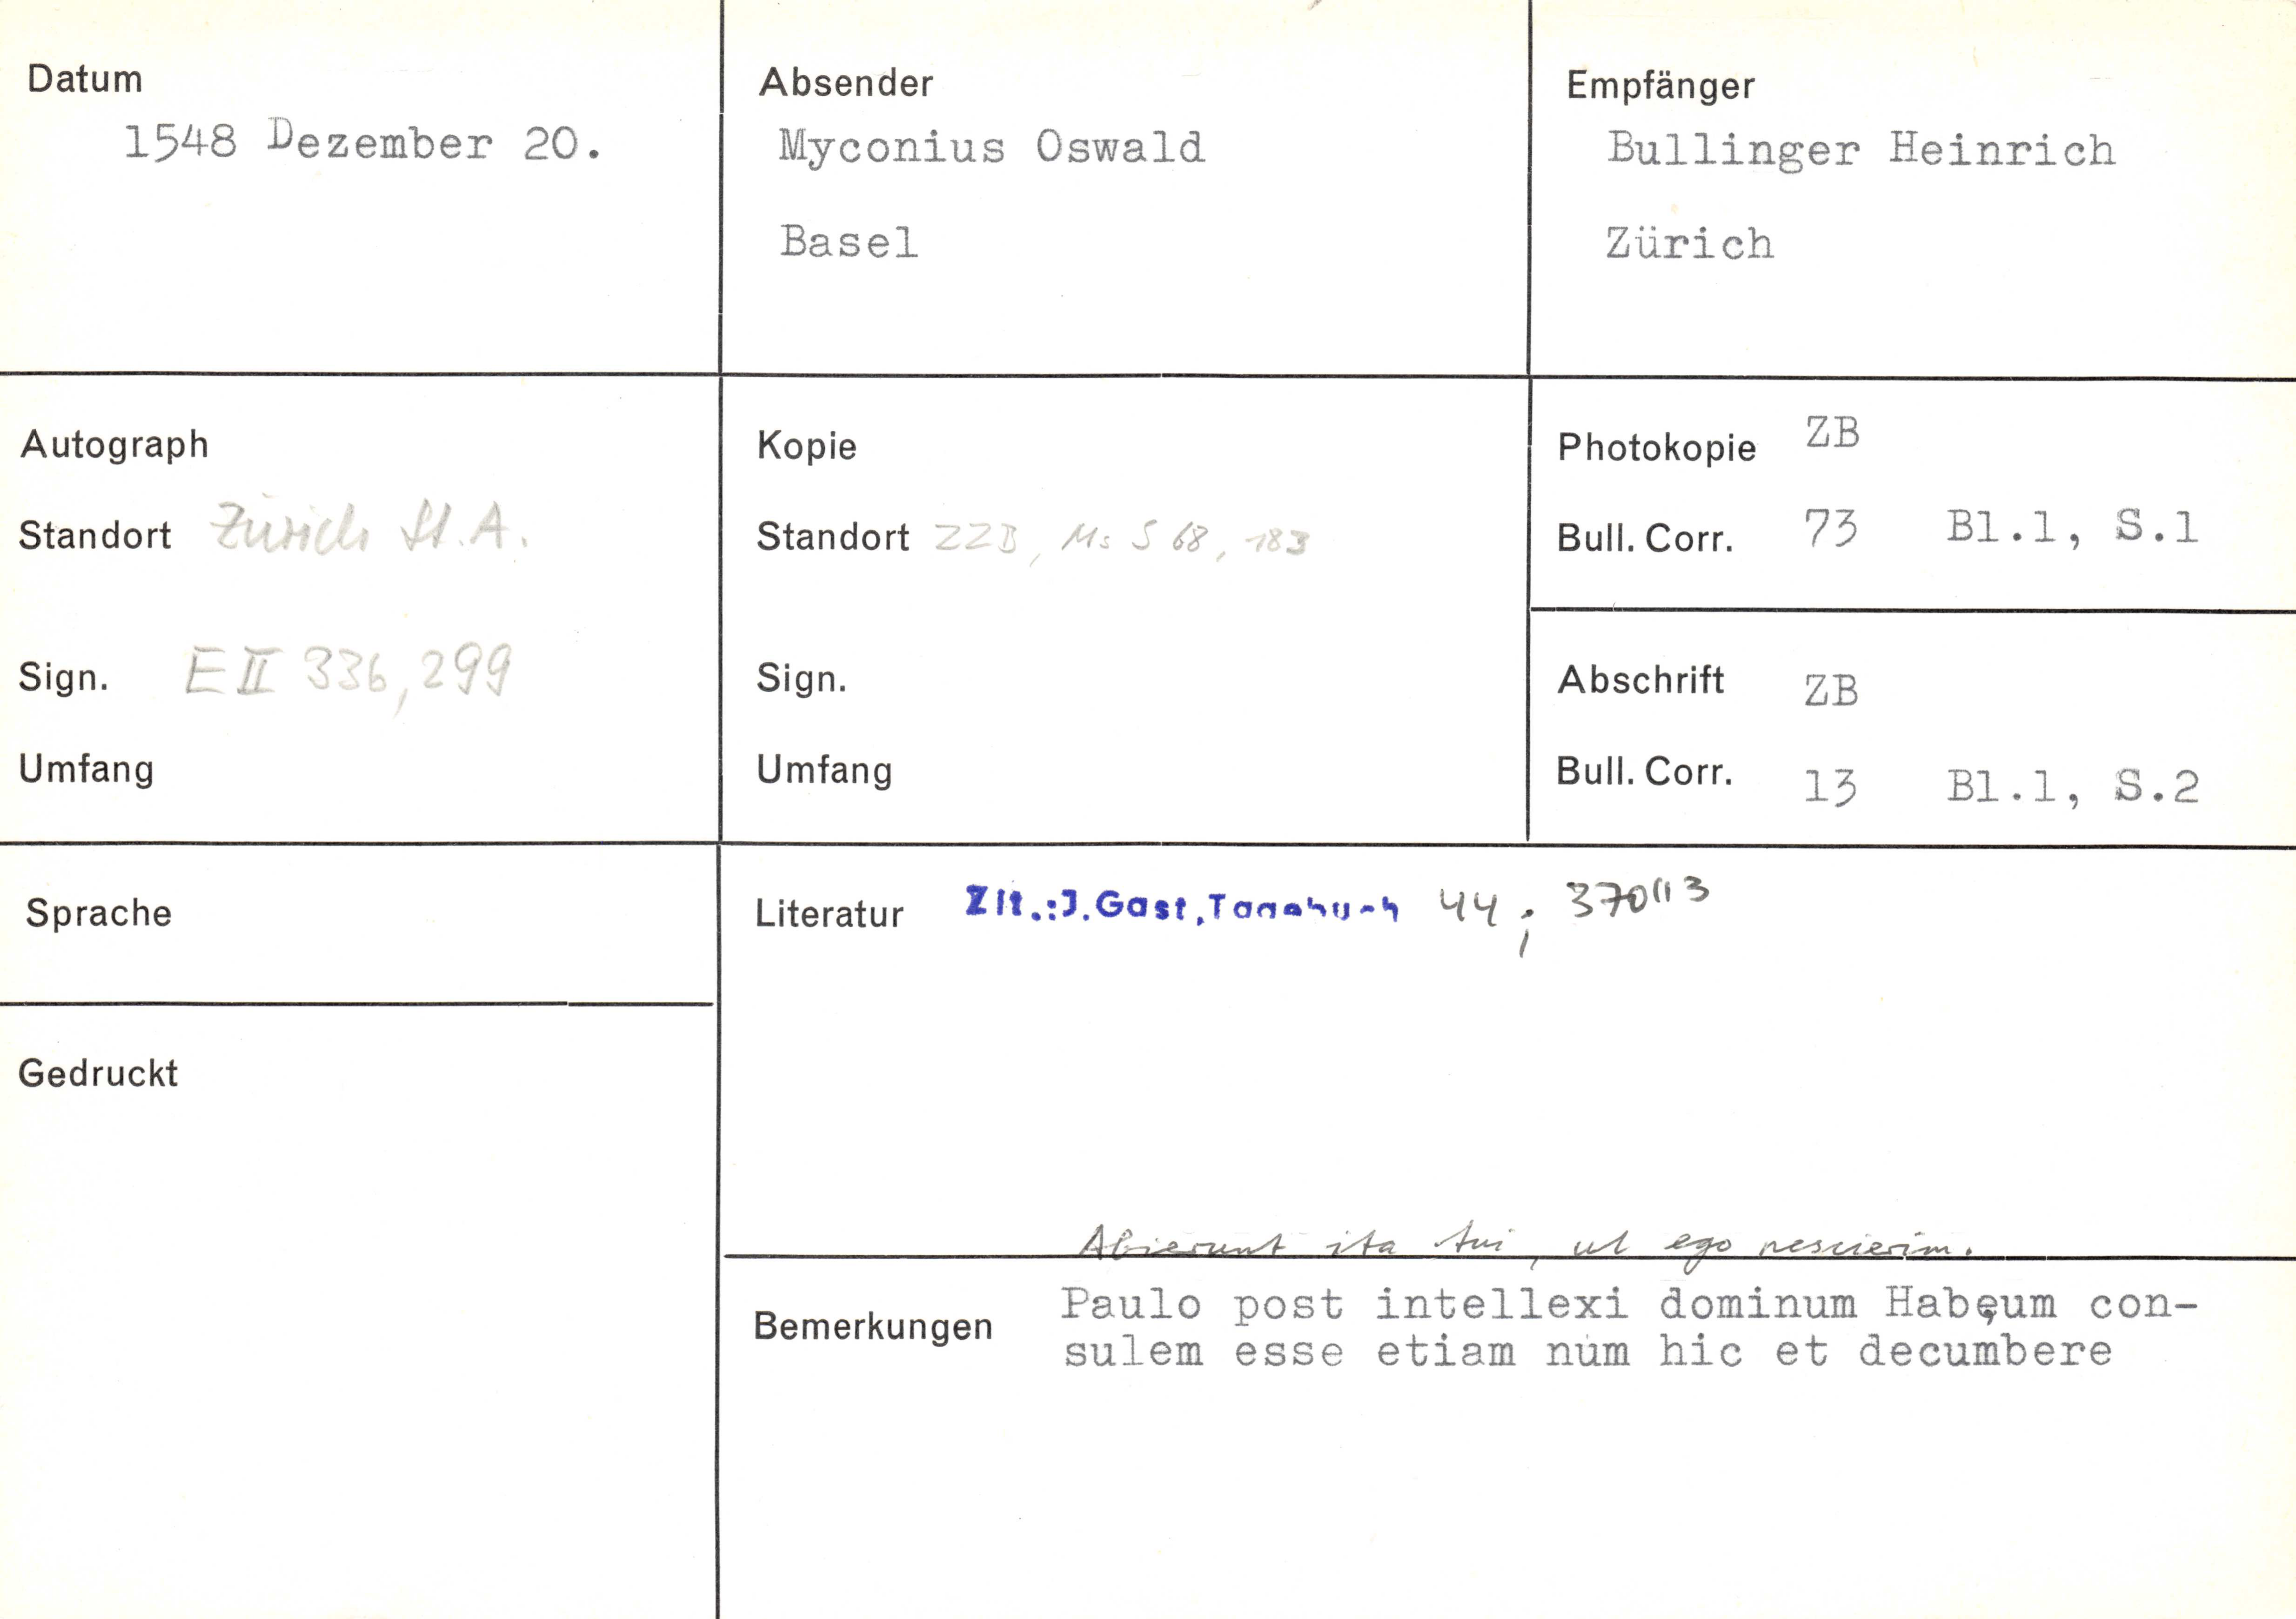 Datum
1548 Dezember 20.
Absender
Myconius Oswald
Basel
Empfänger
Bullinger Heinrich
Zürich
Autograph
Standort Zürich St.A.
Sign. E II 336, 299
Umfang
Kopie
Standort ZZB, Ms S 68, 183
Sign.
Umfang
Photokopie ZB
Bull. Corr. 73 Bl.1, S.1
Abschrift ZB
Bull. Corr. 13 Bl.1, S.2
Sprache
Gedruckt
Literatur Zit.:J.Gast,Tagebuch 44; 370
Abierunt ita tui, ut ego nescierim.
Bemerkungen Paulo post intellexi dominum Habęum con-
sulem esse etiam num hic et decumbere